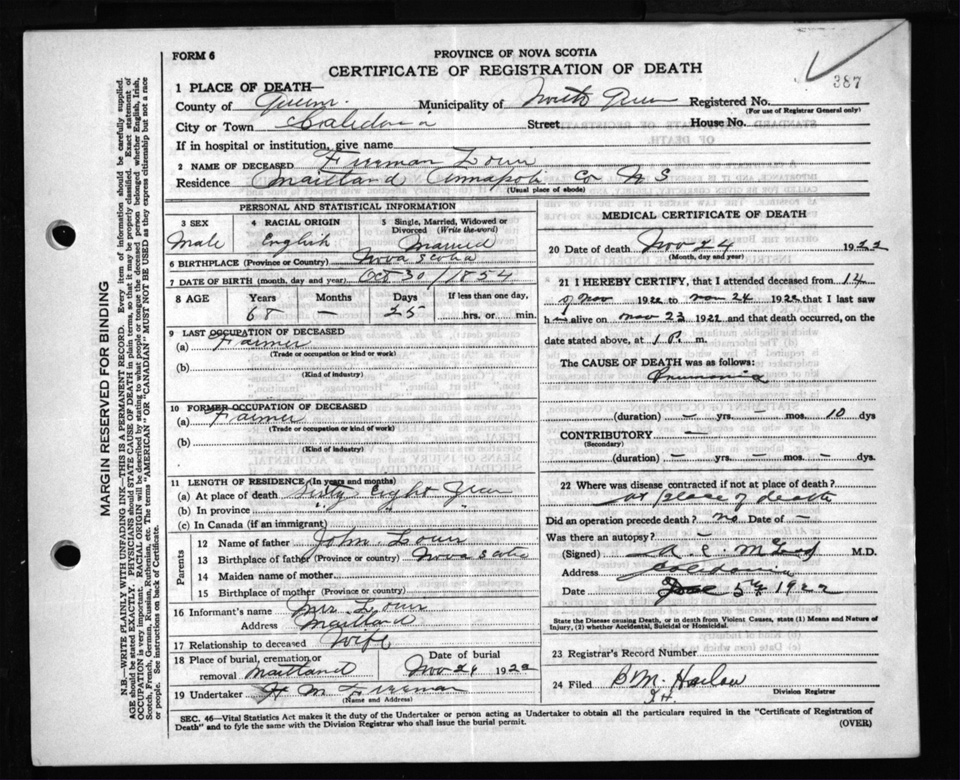 FORM 6
PROVINCE OF NOVA SCOTIA
CERTIFICATE OF REGISTRATION OF DEATH
387
1 PLACE OF DEATH—
County of Queens. Municipality of North Queens Registered No.
(For use of Registrar General only)
City or Town Caledonia Street House No.
If in hospital or institution, give name
2 NAME OF DECEASED Freeman
Residence Maitland Annapolis Co N S
(Usual place of abode)
PERSONAL AND STATISTICAL INFORMATION
3 SEX 4 RACIAL ORIGIN 5 Single, Married, Widowed or Divorced (Write the word)
Male English Married
6 BIRTHPLACE (Province or Country) Nova Scotia
7 DATE OF BIRTH (month, day and year) Oct 30/1854
8 AGE Years Months Days If less than one day,
68 — 25 hrs. or min.
9 LAST OCCUPATION OF DECEASED
(a) Farmer
(Trade or occupation or kind or work)
(b)
(Kind of industry)
10 FORMER OCCUPATION OF DECEASED
(a) Farmer
(Trade or occupation or kind of work)
(b)
(Kind of industry)
11 LENGTH OF RESIDENCE (In years and months)
(a) At place of death Sixty Eight Years
(b) In province " " "
(c) In Canada (if an immigrant)
Parents
12 Name of father John
13 Birthplace of father (Province or country) Nova Scotia
14 Maiden name of mother
15 Birthplace of mother (Province or country)
16 Informant's name Mrs
Address Maitland
17 Relationship to deceased Wife
18 Place of burial, cremation or removal Maitland Date of burial Nov 26 1922
19 Undertaker H M Freeman
(Name and Address)
MEDICAL CERTIFICATE OF DEATH
20 Date of death Nov 24 1922
(Month, day and year)
21 I HEREBY CERTIFY, that I attended deceased from 14
of Nov 1922 to Nov 24 1922 that I last saw
h alive on Nov 23 1922 and that death occurred, on
date stated above, at 1 P. m.
The CAUSE OF DEATH was as follows:
Pneumonia
(duration) — yrs. — mos. 10 dys
CONTRIBUTORY —
(Secondary)
(duration) — yrs. — mos. — dys.
22 Where was disease contracted if not at place of death?
at place of death
Did an operation precede death? no Date of —
Was there an autopsy? —
(Signed) M.D.
Address Caledonia
Date 5th 1922
State the Disease causing Death, or in death from Violent Causes, state (1) Means and Nature of Injury, (2) whether Accidental, Suicidal or Homicidal.
23 Registrar's Record Number
24 Filed B M. Harlow
Division Registrar
SEC. 46—Vital Statistics Act makes it the duty of the Undertaker or person acting as Undertaker to obtain all the particulars required in the "Certificate of Registration of
Death" and to fyle the same with the Division Registrar who shall issue the burial permit.
(OVER)
MARGIN RESERVED FOR BINDING
N.B.—WRITE PLAINLY WITH UNFADING INK—THIS IS A PERMANENT RECORD. Every item of information should be carefully supplied.
AGE should be stated EXACTLY. PHYSICIANS should STATE CAUSE OF DEATH in plain terms, so that it may be properly classified. Exact statement of
OCCUPATION is very important. RACIAL ORIGIN will be described by stating to what people or tongue the deceased person belonged whether English, Irish,
Scotch, French, German, Russian, Ruthenian, etc. The terms "AMERICAN" OR "CANADIAN" MUST NOT BE USED as they express citizenship but not a race
or people. See instructions on back of Certificate.